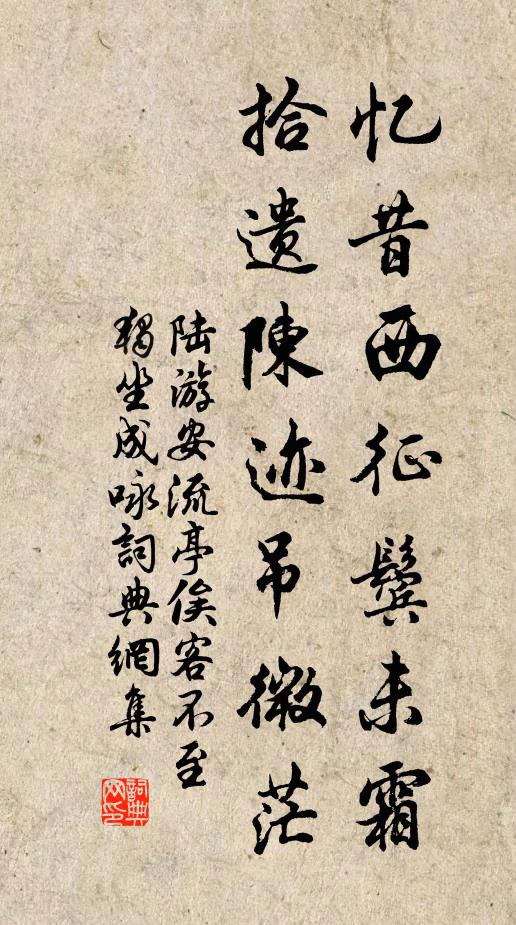 忆昔西征鬓未霜
拾遗陈迹吊微茫
陆游安流亭俟客不至
独坐成咏词典網集
詞典网印